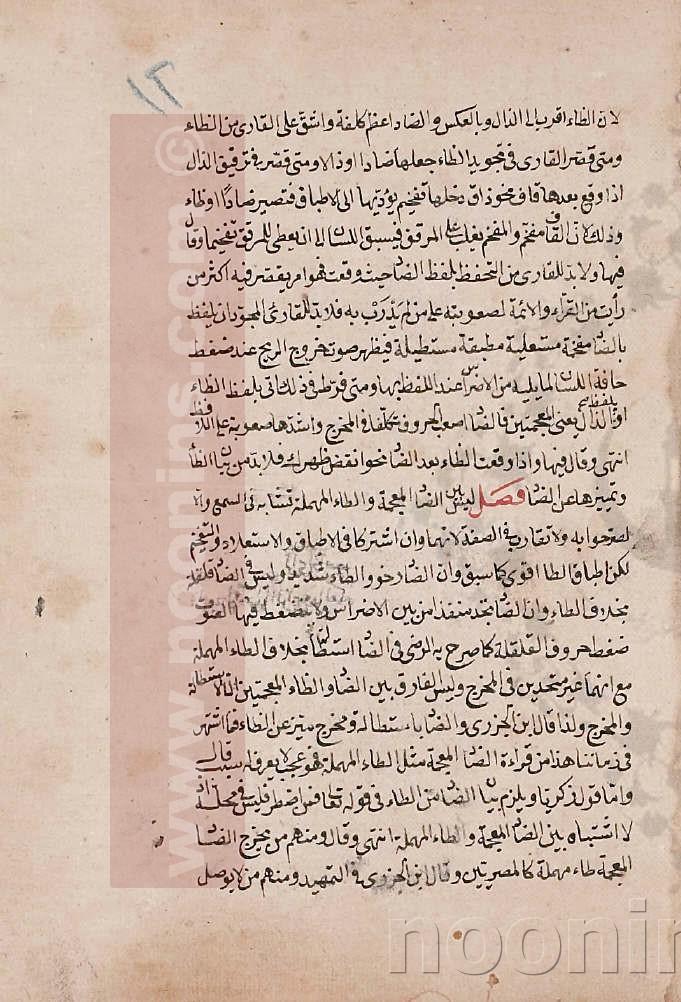 ١٢
لان الظاء اقرب الى الذال وبالعكس والضاد اعظم كلفة واشق على القارى من الظاء
ومتى قصر القارى فى تجويد الظاء جعلها ضادا اوذالا ومتى قصر فى ترقيق الذال
اذا وقع بعدها قاف نحو ذاق دخلها تفخيم يؤديها الى الاطباق فتصير ضادا اوظاء
وذلك لان القاف مفخم والمفخم يغلب على المرقق فيسبق اللسان الى ان يعطى للمرقق تفخيما وقال
فيها ولا بد للقارى من التحفظ بلفظ الضاد حيث وقعت فهو امر يقصر فيه اكثر من
رأيت من القرآء والائمة لصعوبته على من لم يدرب به فلا بد للقارئ المجود ان يلفظ
بالضاد مفخمة مستعلية مطبقة مستطيلة فيظهر صوت خروج الريح عند ضغط
حافة اللسان لما يليه من الاضراس عند اللفظ بها ومتى فرط فى ذلك اتى بلفظ الظاء
او بلفظ الذال يعنى المعجمتين فالضاد اصعب الحروف تكلفا فى المخرج واشدها صعوبة على اللافظ
انتهى وقال فيها واذا وقعت الظاء بعد الضاد نحو انقض ظهرك فلا بد من بيان الظاء
وتمييزها عن الضاد فصل ليس بين الضاد المعجمة والطاء المهملة تشابه فى السمع والا
لصرحوا به ولا تقارب فى الصفة لانهما وان اشتركا فى الاطباق والاستعلاء والتفخيم
لكن اطباق الطا اقوى كما سبق وان الضاد رخو والطاء شديد وليس فى الضاد قلقلة
بخلاف الطاء وان الضاد تجد منفذا من بين الاضراس ولا ينضغط فيها الصوت
ضغط حروف القلقلة كما صرح به الرضى فى الضاد استطالة بخلاف الطاء المهملة
مع انهما غير متحدين فى المخرج وليس الفارق بين الضاد والظاء المعجمتين الا الاستطالة
والمخرج ولذا قال ابن الجزرى والضاد باستطالة ومخرج ميز عن الظاء فما اشتهر
فى زماننا هذا من قراءة الضاد المعجمة مثل الطاء المهملة فهو عجب لا يعرف له سبب قال
واما قول زكريا ويلزم بيان الضاد من الطاء فى قوله تعالى فمن اضطر فليس فى محله اذ
لا اشتباه بين الضاد المعجمة والطاء المهملة انتهى وقال ومنهم من يخرج الضاد
المعجمة طاء مهملة كالمصريين وقال ابن الجزرى فى التمهيد ومنهم من لا يوصل
© www.noonims.com
noonin